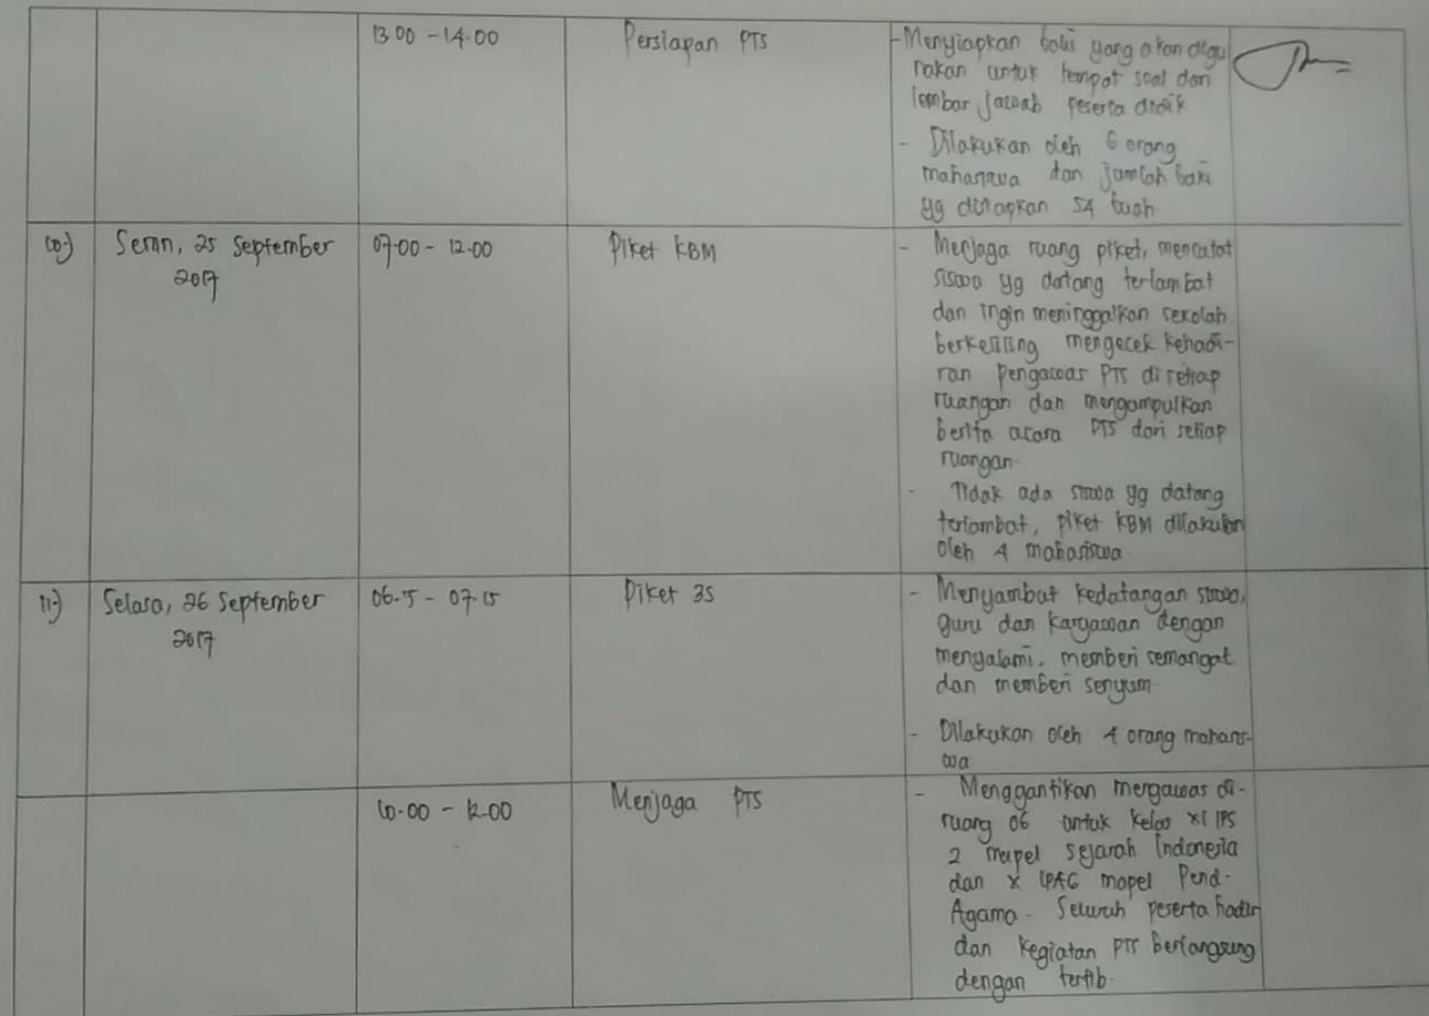 13.00 - 14.00
Persiapan PTS
- Menyiapkan baki yang akan digu
nakan untuk tempat soal dan
lembar jawab peserta didik
- Dilakukan oleh 6 orang
mahasiswa dan jumlah baki
yg disiapkan 54 buah
10.)
Senin, 25 September
2017
07.00 - 12.00
Piket KBM
- Menjaga ruang piket, mencatat
siswa yg datang terlambat
dan ingin meninggalkan sekolah
berkeliling mengecek kehadi-
ran pengawas PTS di setiap
ruangan dan mengumpulkan
berita acara PTS dari setiap
ruangan.
- Tidak ada siswa yg datang
terlambat, piket KBM dilakukan
oleh 4 mahasiswa
11.)
Selasa, 26 September
2017
06.5 - 07.15
Piket 3S
- Menyambut kedatangan siswa,
guru dan karyawan dengan
menyalami, memberi semangat
dan memberi senyum.
- Dilakukan oleh 4 orang mahasis-
wa
10.00 - 12.00
Menjaga PTS
- Menggantikan mengawas di-
ruang 06 untuk kelas XI IPS
2 mapel sejarah Indonesia
dan X mapel Pend.
Agama. Seluruh peserta hadir
dan kegiatan PTS berlangsung
dengan tertib.